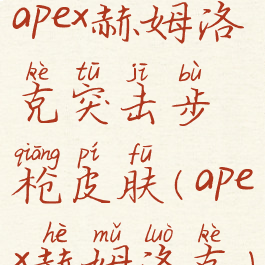 apex赫姆洛
kè tū jī bù
克突击步
qiāng pí fū
枪皮肤(ape
hè mǔ luò kè
x赫姆洛克)